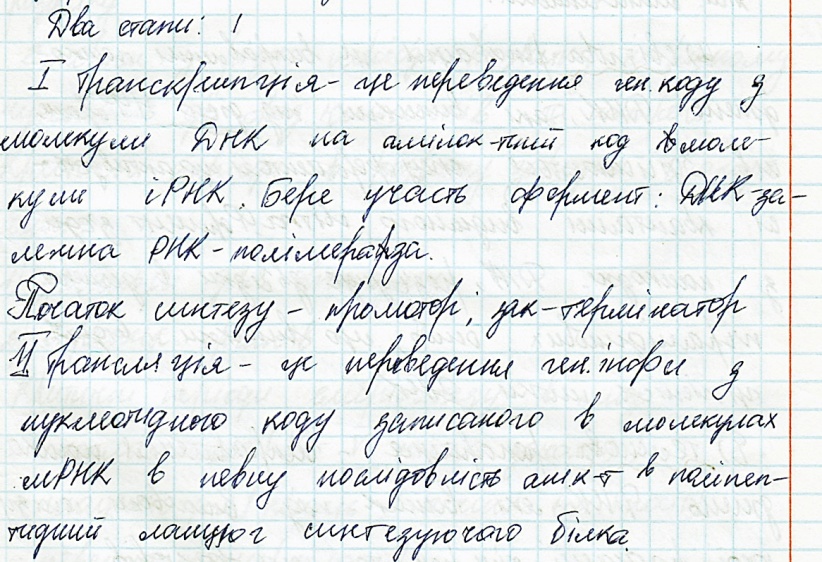 Два етапи:
I Транскрипція - це переведення ген. коду з
молекули ДНК на амінок-тний код в моле-
кули іРНК. Бере участь фермент: ДНК-за-
лежна РНК - полімераза.
Початок синтезу - промотор; зак-термінатор
II Трансляція - це переведення ген. інфи з
нуклеотидного коду записаного в молекулах
мРНК в певну послідовність амк-т в поліпеп-
тидний ланцюг синтезуючого білка.